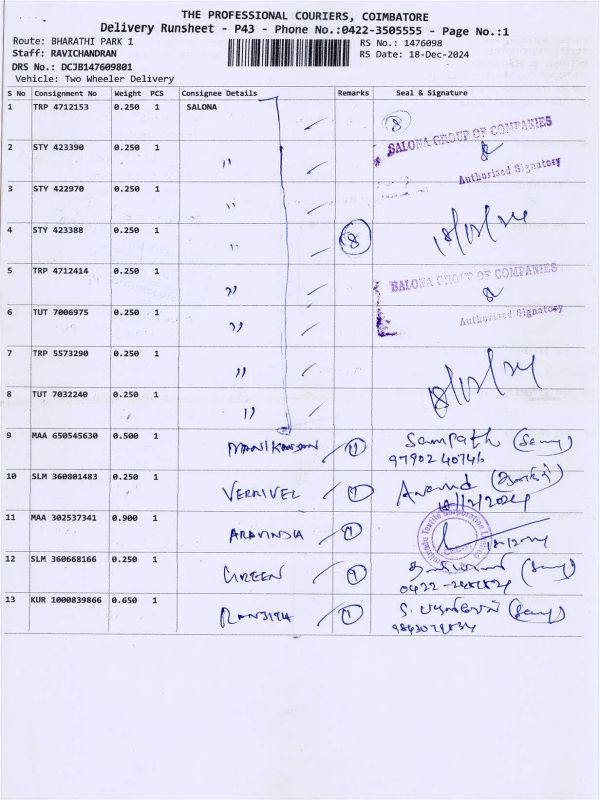 THE PROFESSIONAL COURIERS, COIMBATORE
Delivery Runsheet - P43 - Phone No.:0422-3505555 - Page No.:1
Route: BHARATHI PARK 1
RS No.: 1476098
Staff: RAVICHANDRAN
RS Date: 18-Dec-2024
DRS No.: DCJB147609801
Vehicle: Two Wheeler Delivery
S No Consignment No Weight PCS Consignee Details Remarks Seal & Signature
1 TRP 4712153 0.250 1 SALONA 8
SALONA GROUP OF COMPANIES
2 STY 423390 0.250 1 "
Authorised Signatory
3 STY 422970 0.250 1 "
18/12/24
4 STY 423388 0.250 1 " 8
5 TRP 4712414 0.250 1 "
SALONA GROUP OF COMPANIES
6 TUT 7006975 0.250 1 "
Authorised Signatory
7 TRP 5573290 0.250 1 "
18/12/24
8 TUT 7032240 0.250 1 "
9 MAA 650545630 0.500 1 MANIKANDAN Sampath
97902 40746
10 SLM 360801483 0.250 1 VERRIVEL Anand
18/12/2024
11 MAA 302537341 0.900 1 ARAVINDA
Tamilnadu Textile Corporation Limited
12 SLM 360668166 0.250 1 GREEN
13 KUR 1000839866 0.650 1 RANJITH